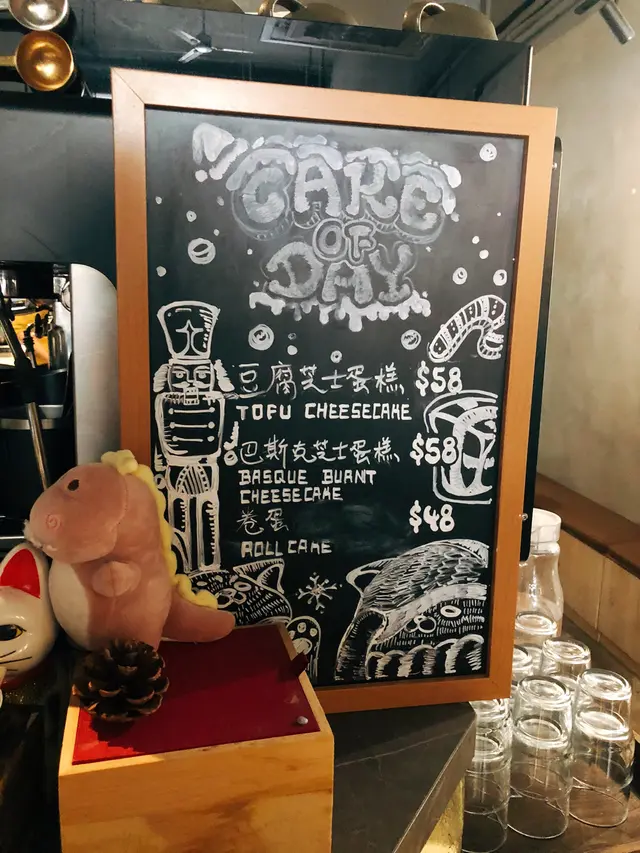 CAKE
OF
DAY
豆腐芝士蛋糕 $58
TOFU CHEESECAKE
巴斯克芝士蛋糕 $58
BASQUE BURNT
CHEESECAKE
卷蛋 $48
ROLL CAKE